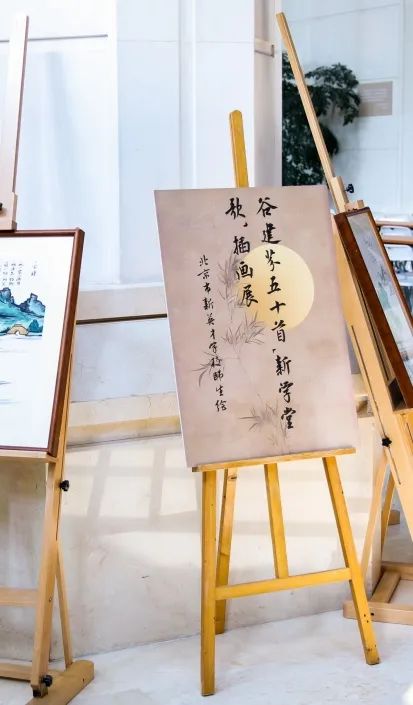 谷建芬五十首「新学堂
歌」插画展
北京市新英才学校师生绘